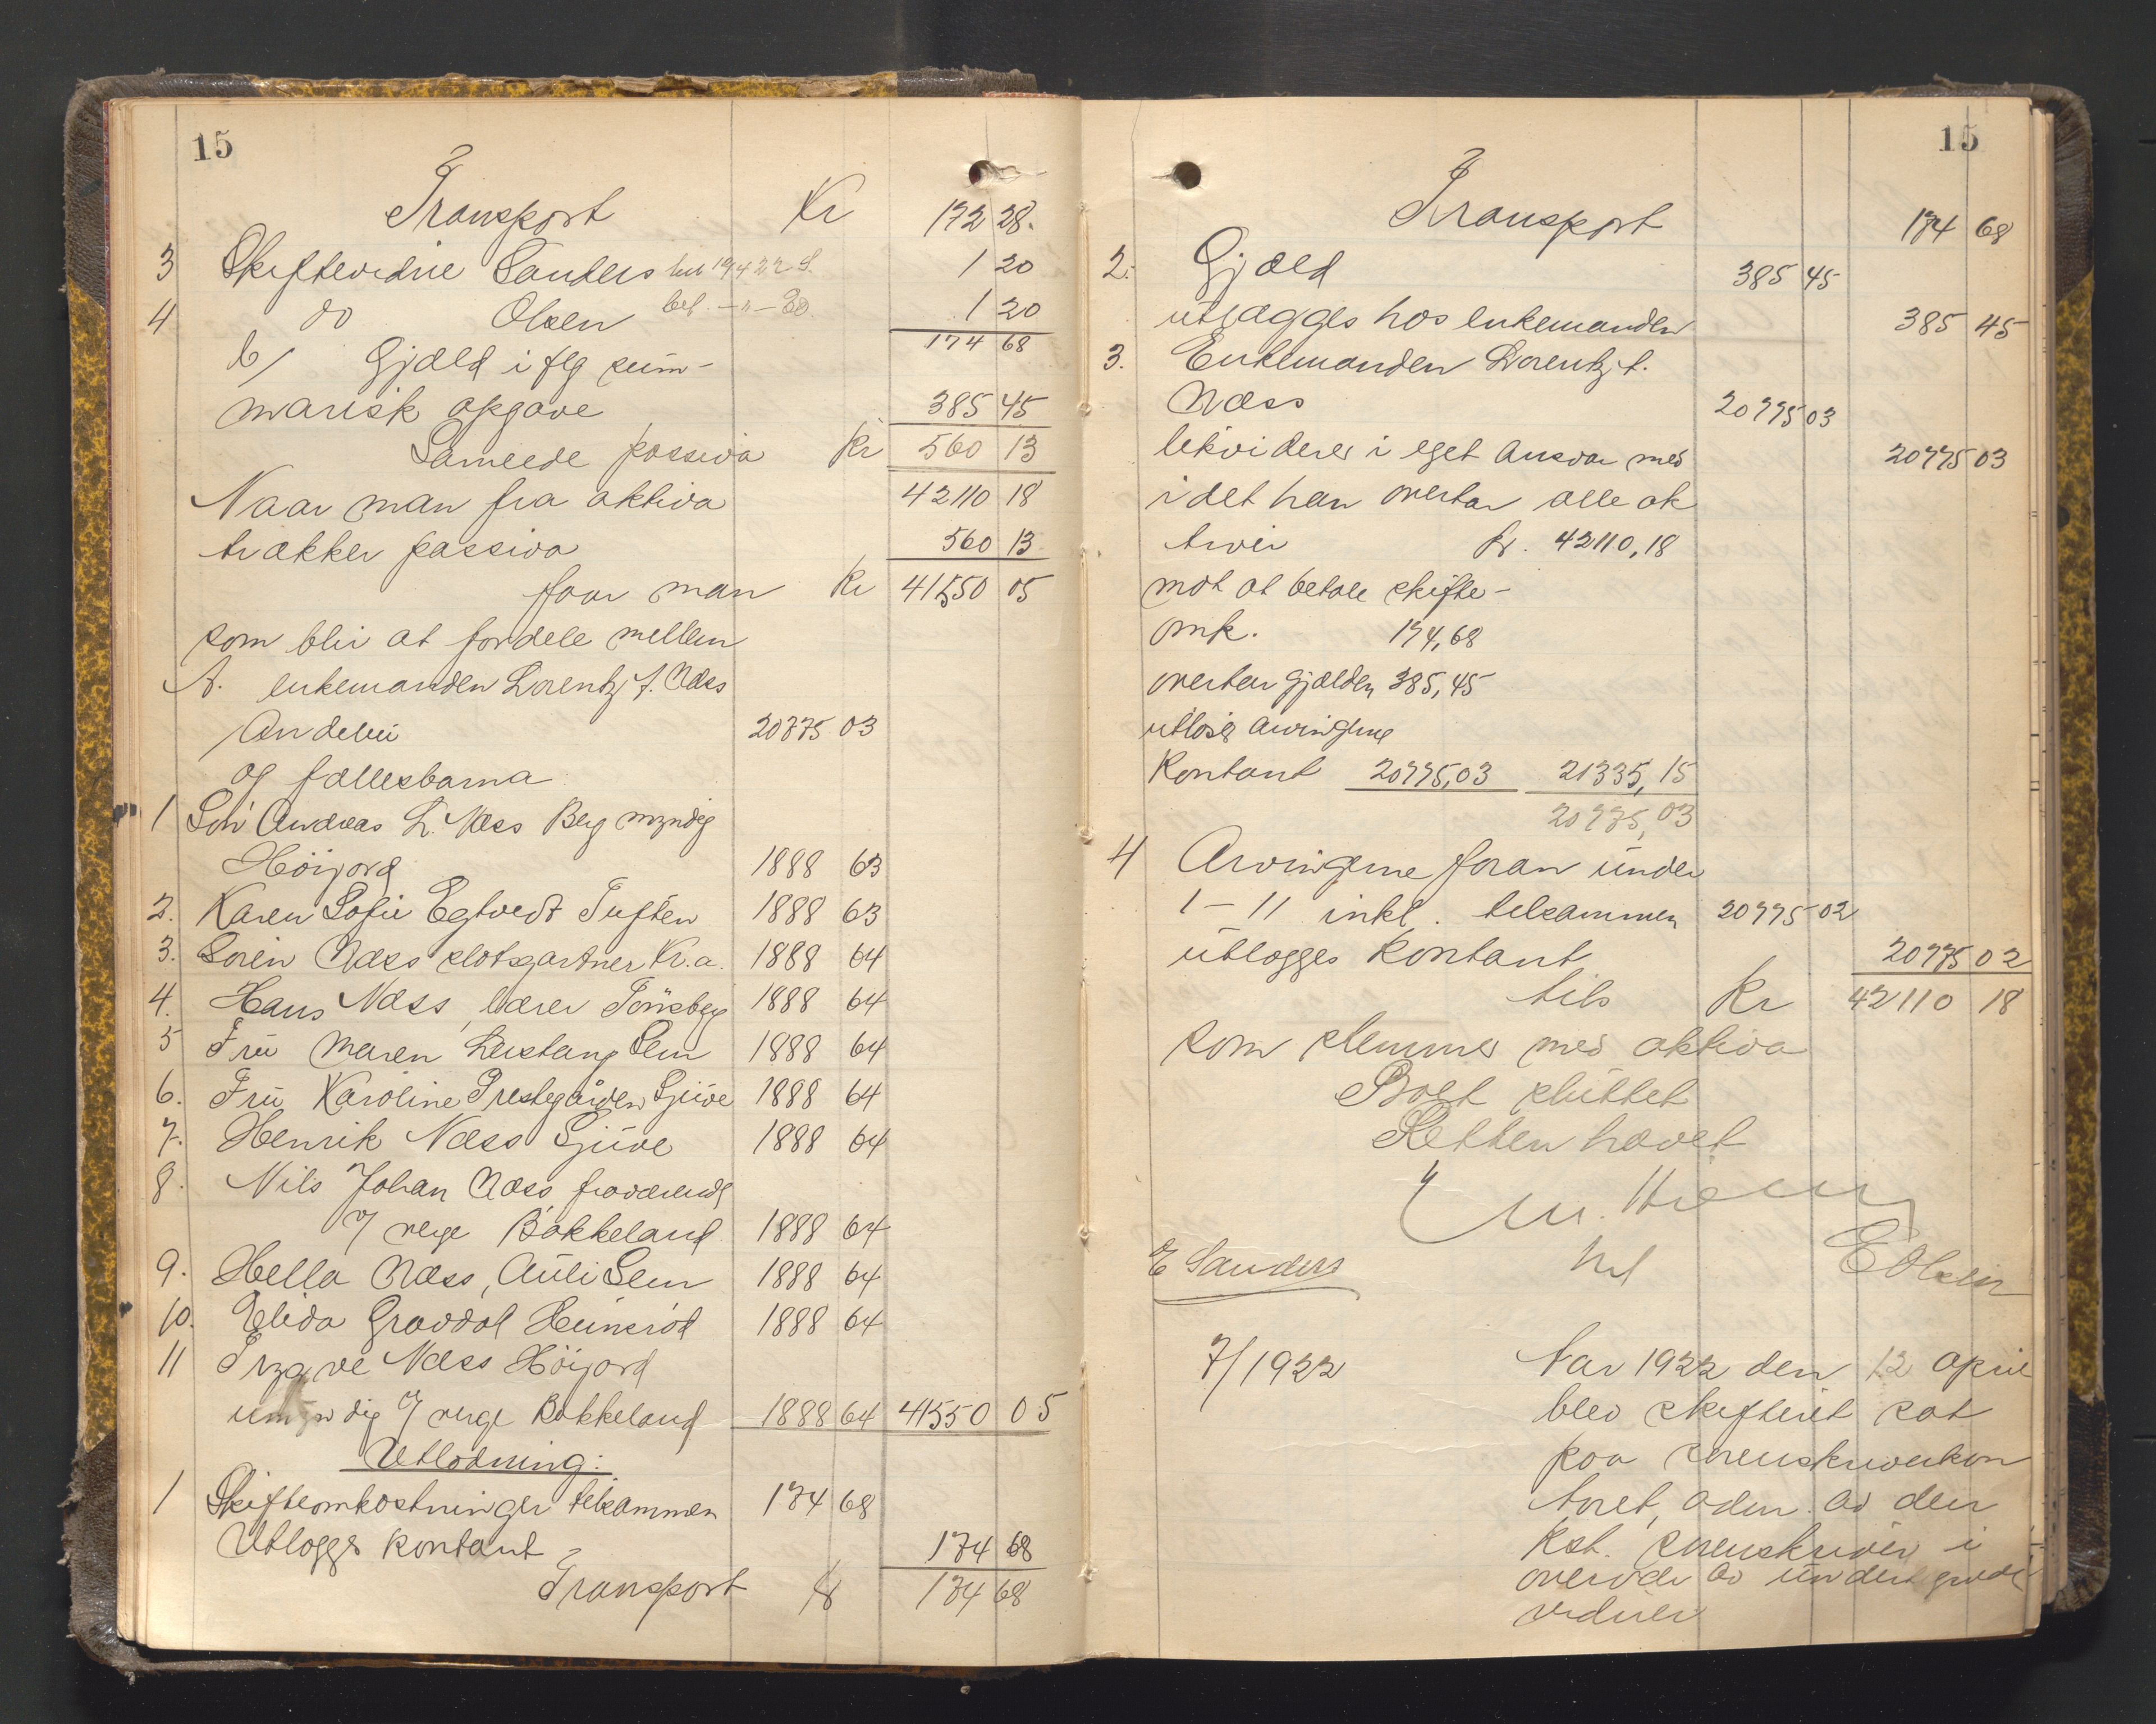 15
Transport Kr 172 28.
3 Skiftevidne Sanders bet 19 4 22 S. 1 20
4 do Olsen bet. -"- EO 1 20
174 68
b/ Gjæld i flg sum-
marisk opgave 385 45
Samlede passiva Kr 560 13
Naar man fra aktiva 42110 18
trækker passiva 560 13
faar man Kr 41550 05
som blir at fordele mellem
A. enkemanden Lorentz J. Næss
Andebu 20775 03
og fællesbarna
1 Søn Andreas L. Næss Berg myndig
Höijord 1888 63
2. Karen Sofie Egtvedt Tuften 1888 63
3. Sören Næss slotsgartner Kr.a. 1888 64
4. Hans Næss, lærer Tönsberg 1888 64
5 Fru Maren Leistang Sem 1888 64
6. Fru Karoline Prestegården, Gjüve 1888 64
7. Henrik Næss Gjüve 1888 64
8. Nils Johan Næss fraværende
v/ verge Bakkeland 1888 64
9. Hella Næss, Auli Sem 1888 64
10. Elida Gravdal Heimsröd 1888 64
11 Trygve Næss Höijord
umyndig v/ verge Bakkeland 1888 64 41550 05
Utlodning:
1 Skifteomkostninger tilsammen 174 68
Utlægges kontant 174 68
Transport Kr 174 68
15
Transport 174 68
2. Gjæld 385 45
utlægges hos enkemanden 385 45
3. Enkemanden Lorentz J.
Næss 20775 03
likvideres i eget ansvar med 20775 03
idet han overtar alle ak
tiver kr. 42110,18
mot at betale skifte-
omk. 174,68
overtar gjælden 385,45
utløse arvingerne
kontant 20775,03 21335,15
20775,03
4 Arvingerne foran under
1-11 inkl. tilsammen 20775 02
utlægges kontant 20775 02
tils Kr 42110 18
som stemmer med aktiva
Boet sluttet
Retten hævet
E Sanders E Olsen
7/1922 Aar 1922 den 12 april
blev skifteret sat
paa sorenskriverkon
toret, adm. av den
kst. sorenskriver i
overvær av undertegnede
vidner